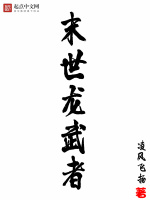 起点中文网
末世龙武者
凌风飞扬
著